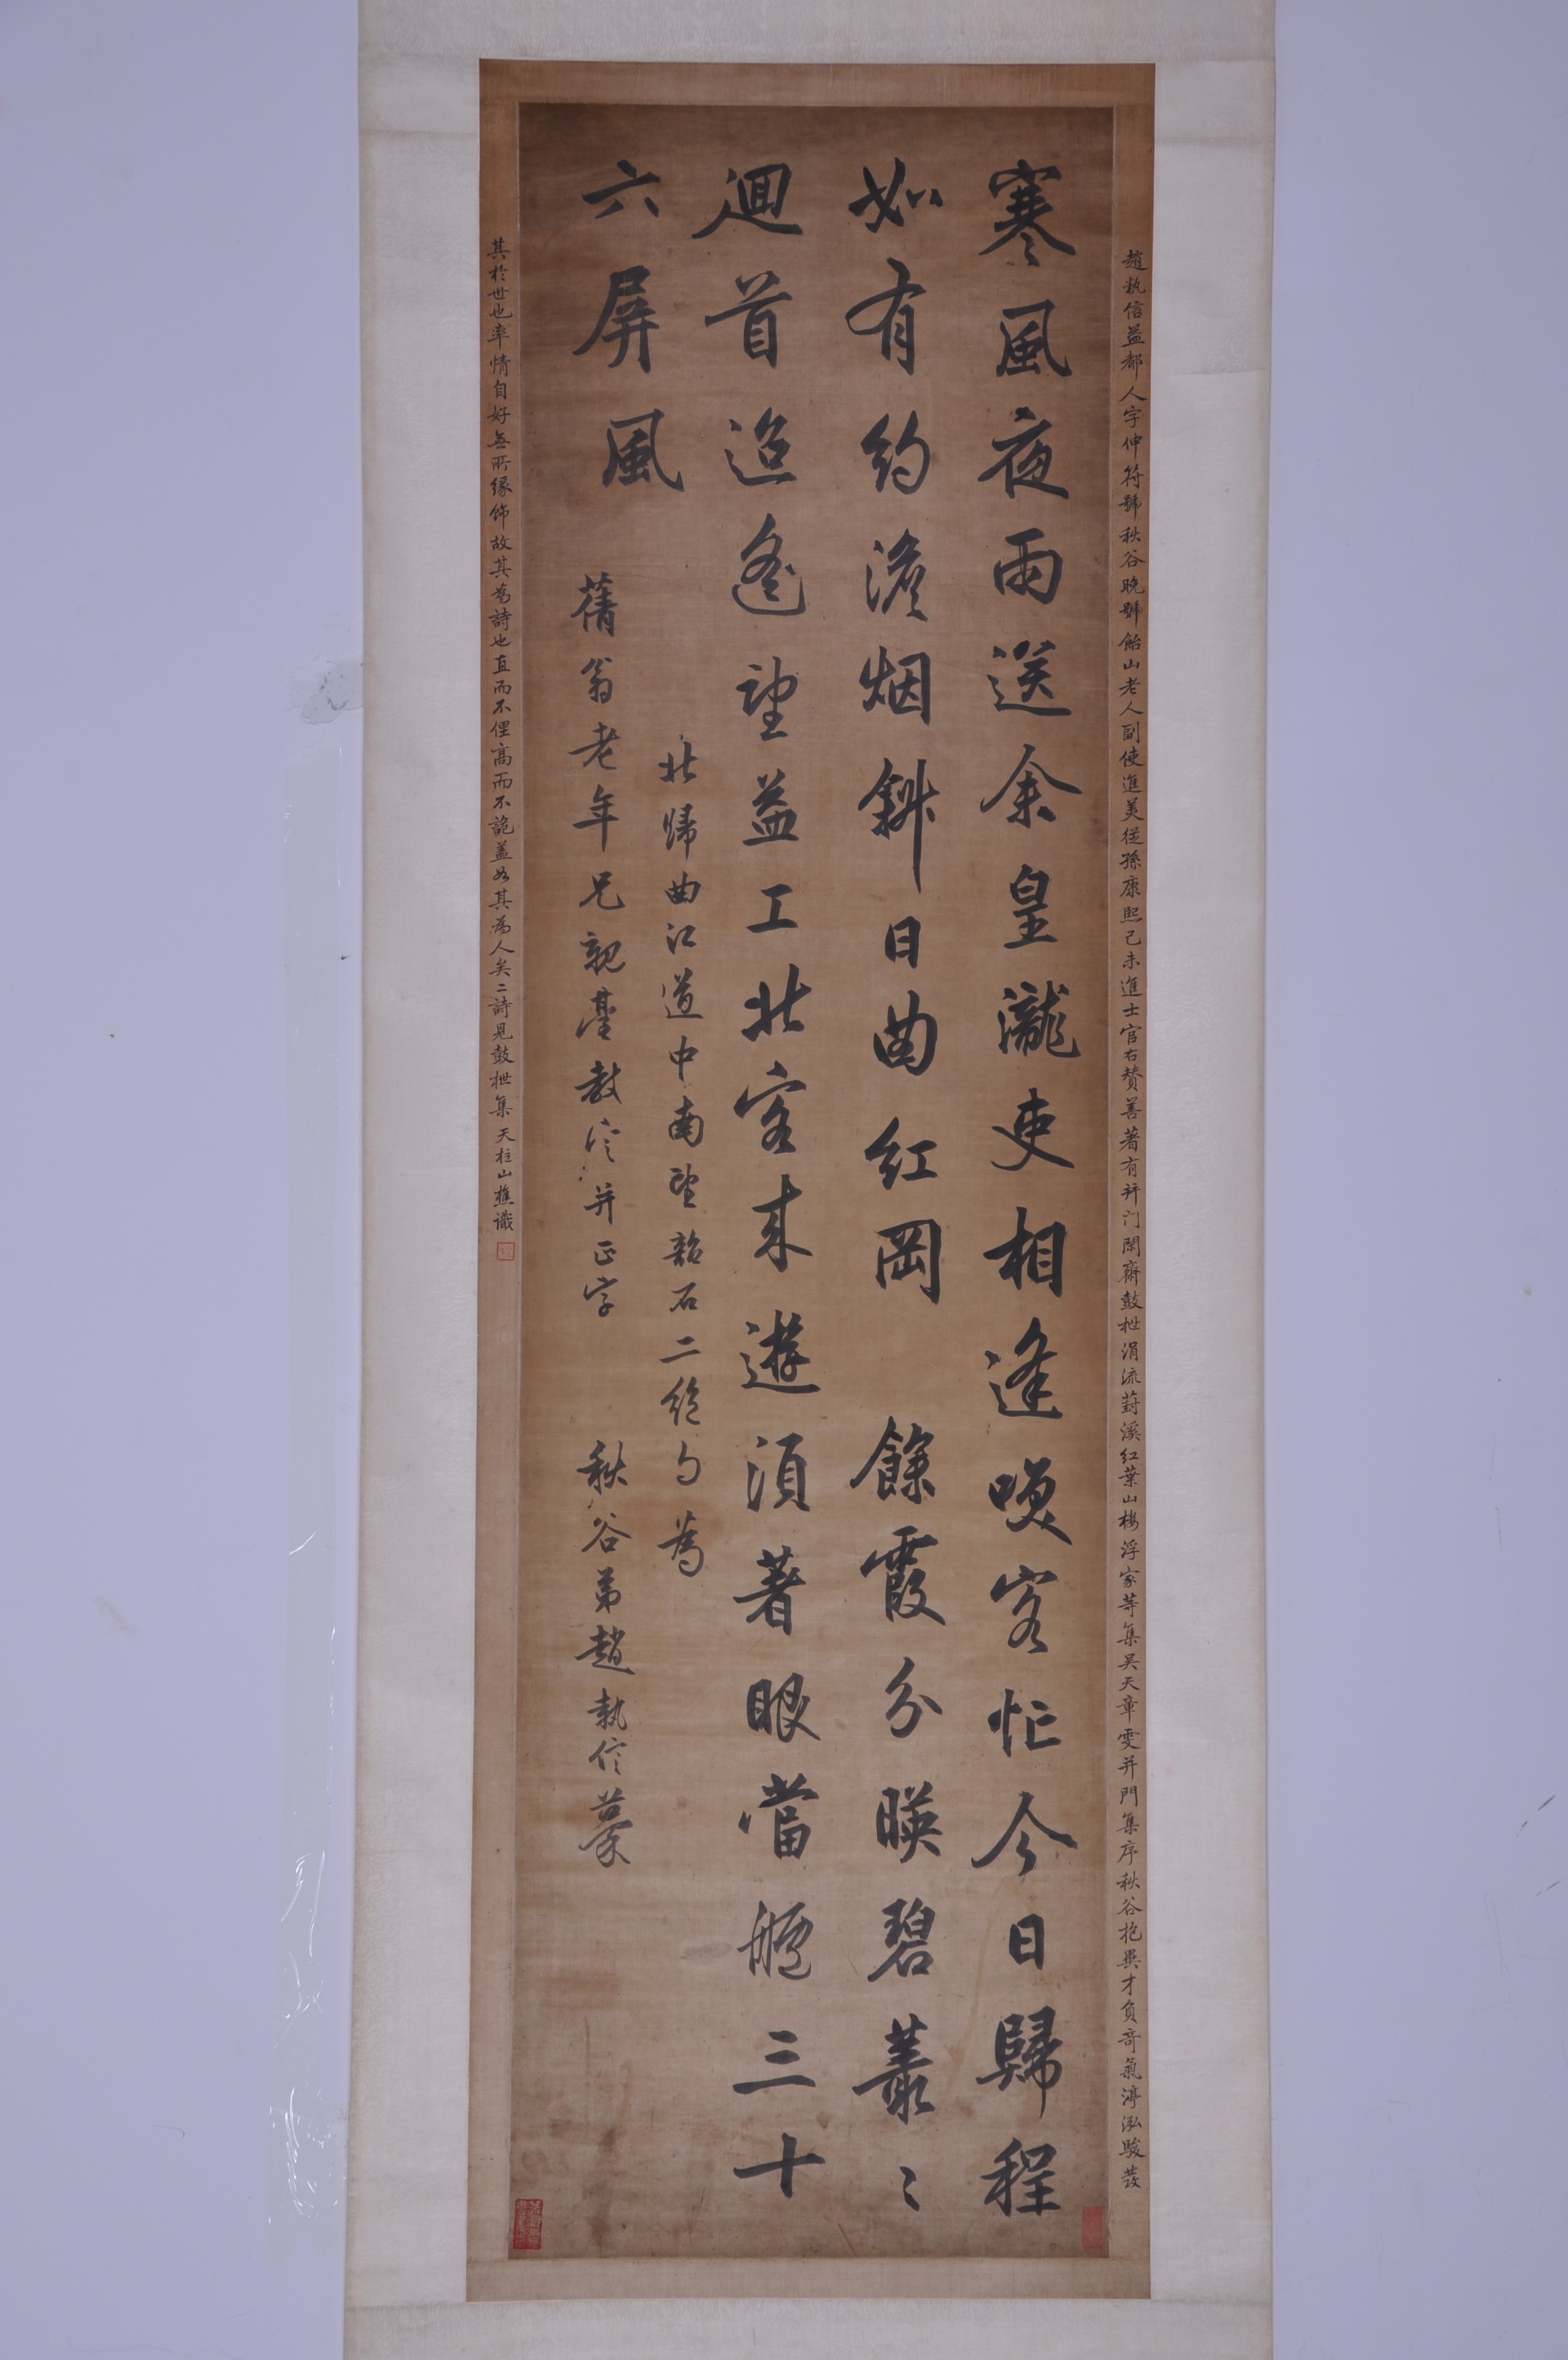 趙執信益都人字伸符號秋谷晚號飴山老人副使進美從孫康熙己未進士官右贊善著有并门閑齋鼓枻涓流葑溪红葉山樓浮家等集吴天章雯并門集序秋谷抱異才負奇氣渟泓駿發
寒風夜雨送余皇瀧吏相逢喚客忙今日歸程
如有約澹烟斜日曲红岡 餘霞分暎碧叢〻
迴首迢遙望益工北客来遊須著眼當艫三十
六屏風
北歸曲江道中南望韶石二絶句為
蒨翁老年兄親臺教定并正字 秋谷弟趙執信藳
其於世也率情自好無所緣飾故其為詩也直而不俚高而不詭蓋如其為人矣二詩見鼓枻集 天柱山樵識